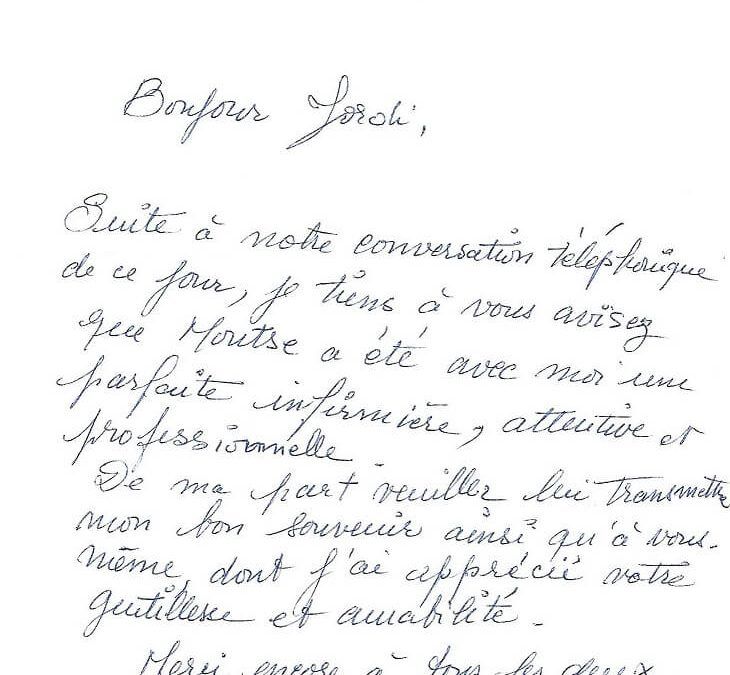 Bonjour Jordi,
Suite à notre conversation téléphonique
de ce jour, je tiens à vous avisez
que Montse a été avec moi une
parfaite infirmière, attentive et
professionnelle
De ma part veuillez lui transmettre
mon bon souvenir ainsi qu'à vous-
même, dont j'ai apprécié votre
gentillesse et amabilité.
Merci encore à tous les deux